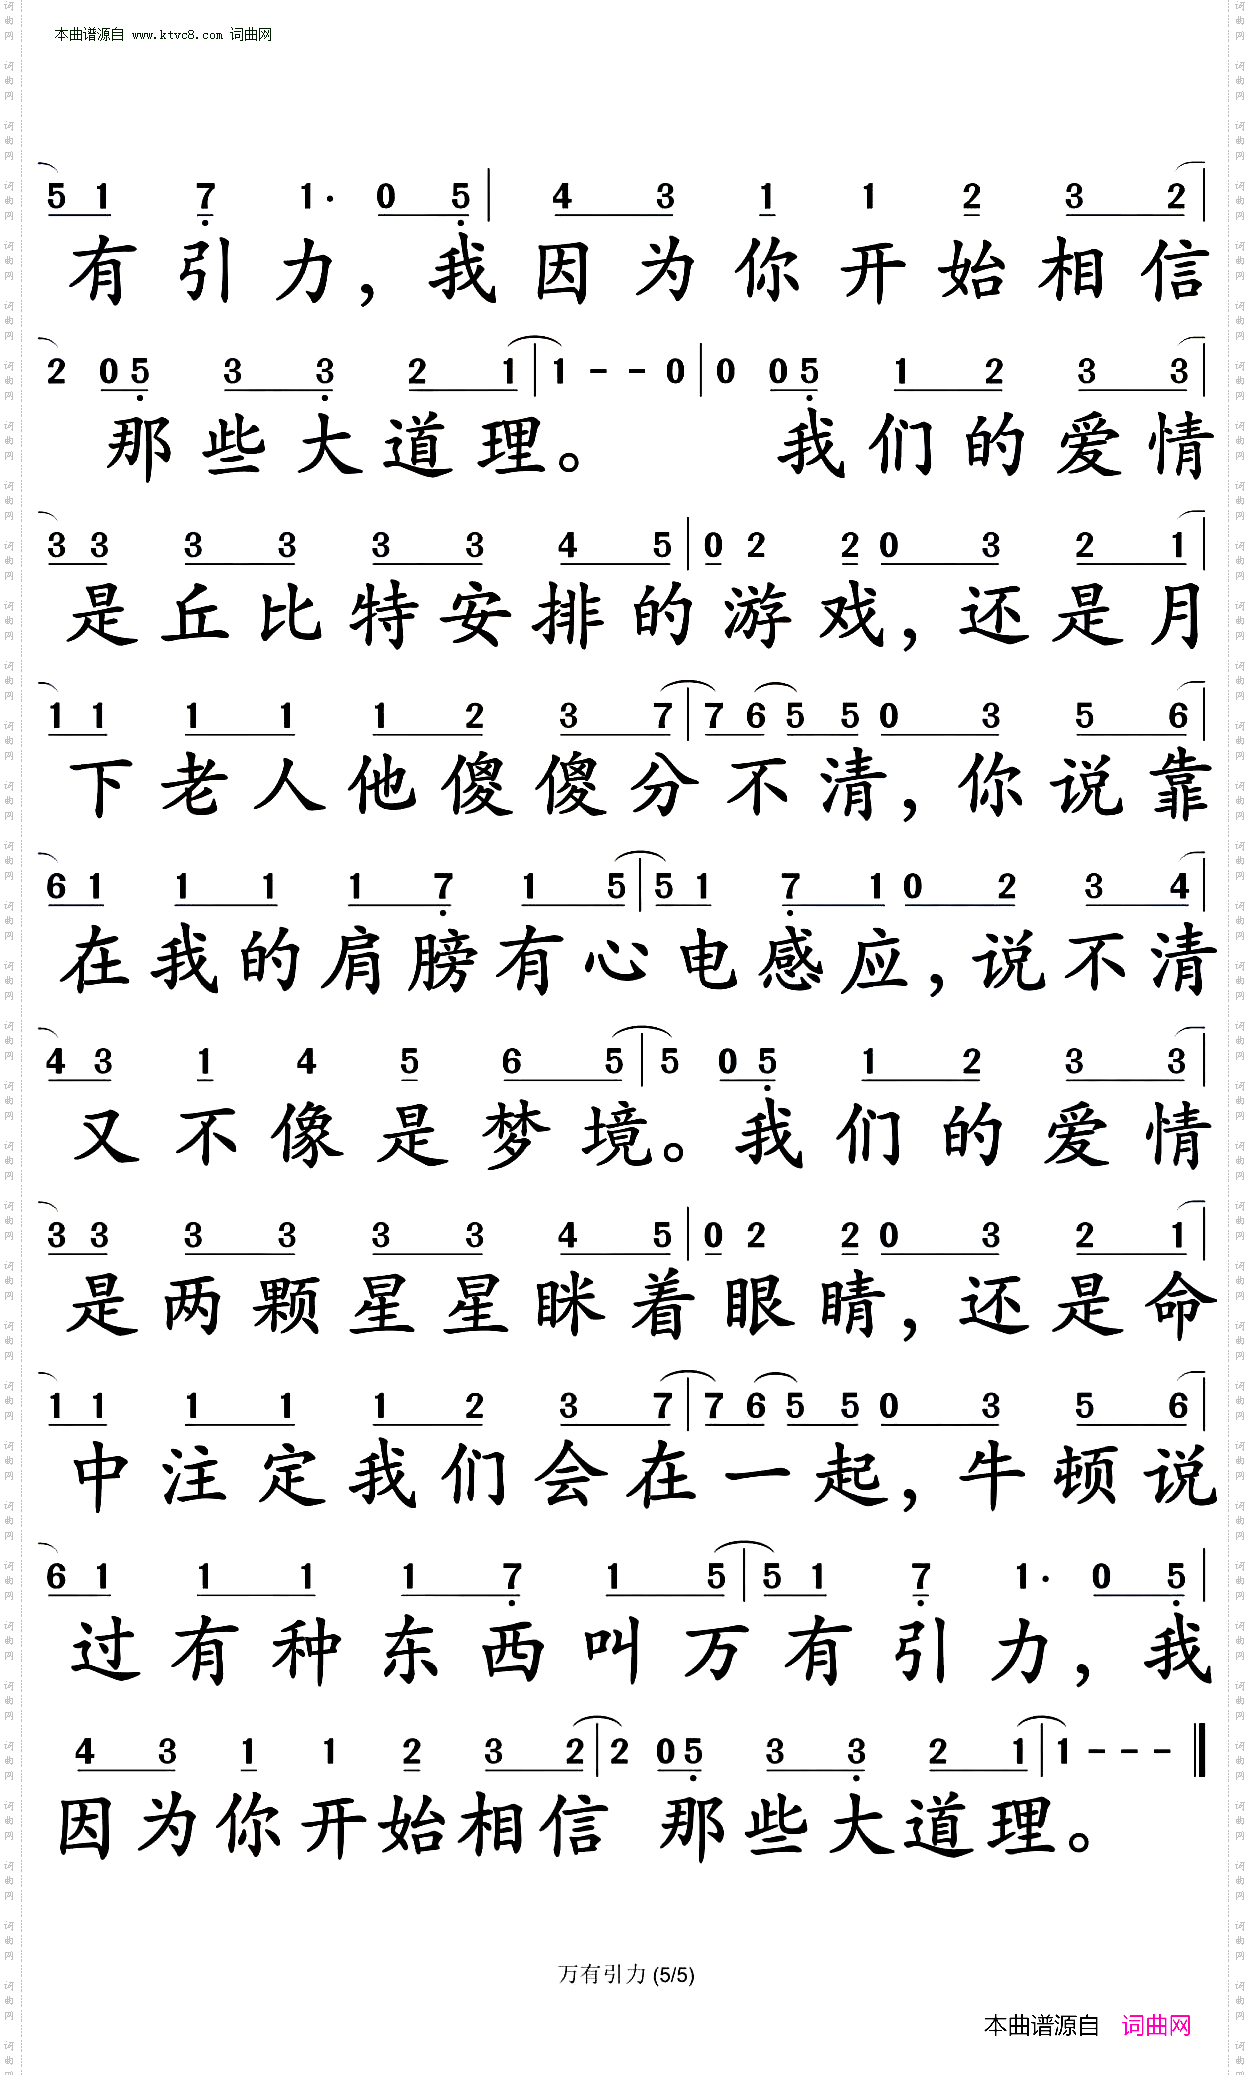 本曲谱源自 www.ktvc8.com 词曲网
5 1 7 1· 0 5 | 4 3 1 1 2 3 2 |
有引力，我因为你开始相信
2 0 5 3 3 2 1 | 1 - - 0 | 0 0 5 1 2 3 3 |
那些大道理。 我们的爱情
3 3 3 3 3 3 4 5 | 0 2 2 0 3 2 1 |
是丘比特安排的游戏，还是月
1 1 1 1 1 2 3 7 | 7 6 5 5 0 3 5 6 |
下老人他傻傻分不清，你说靠
6 1 1 1 1 7 1 5 | 5 1 7 1 0 2 3 4 |
在我的肩膀有心电感应，说不清
4 3 1 4 5 6 5 | 5 0 5 1 2 3 3 |
又不像是梦境。我们的爱情
3 3 3 3 3 3 4 5 | 0 2 2 0 3 2 1 |
是两颗星星眯着眼睛，还是命
1 1 1 1 1 2 3 7 | 7 6 5 5 0 3 5 6 |
中注定我们会在一起，牛顿说
6 1 1 1 1 7 1 5 | 5 1 7 1· 0 5 |
过有种东西叫万有引力，我
4 3 1 1 2 3 2 | 2 0 5 3 3 2 1 | 1 - - - ‖
因为你开始相信 那些大道理。
万有引力 (5/5)
本曲谱源自 词曲网